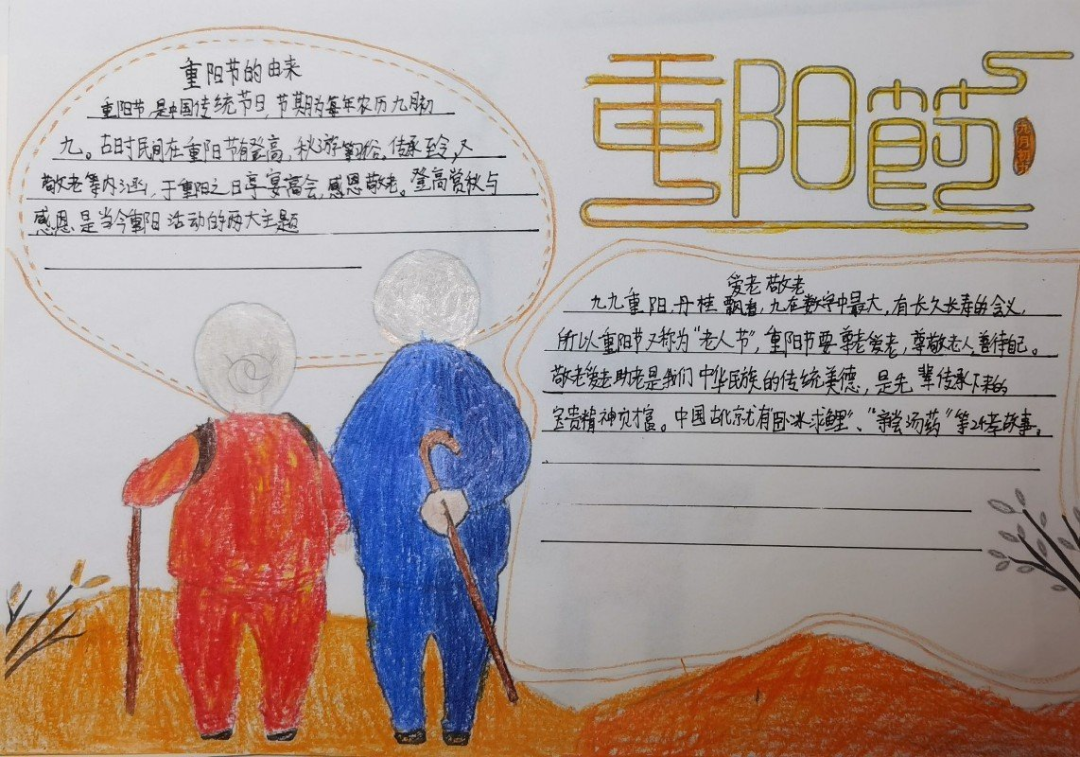 重阳节的由来
重阳节,是中国传统节日,节期为每年农历九月初
九。古时民间在重阳节有登高,秋游等习俗。传承至今,又
敬老等内涵,于重阳之日享宴高会,感恩敬老。登高赏秋与
感恩是当今重阳日活动的两大主题
重阳节
九月初九
爱老敬老
九九重阳,丹桂飘香,九在数字中最大,有长久长寿的含义,
所以重阳节又称为“老人节”,重阳节要尊老爱老,尊敬老人,善待自己。
敬老爱老助老是我们中华民族的传统美德,是先辈传承下来的
宝贵精神财富。中国古北京就有“卧冰求鲤”、“亲尝汤药”等24孝故事。